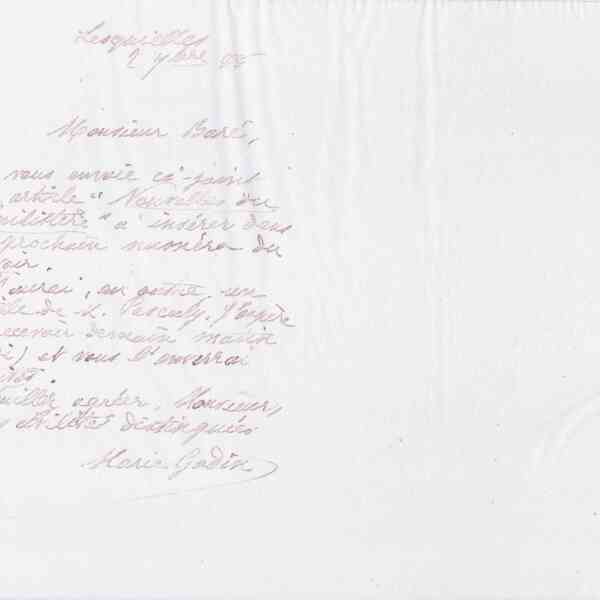 Lesquielles
2 7bre
Monsieur Baré,
vous envoie ci-joint
article "Nouvelles du
milistère" à insérer dans
prochain numéro du
oir.
aurai, en outre, un
de M. Pascaly. J'espère
recevoir demain matin
) et vous l'enverrai
uillez agréer, Monsieur,
civilités distinguées
Marie Godin